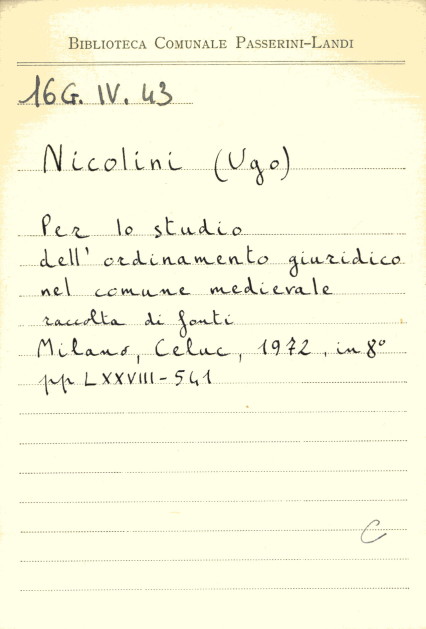 BIBLIOTECA COMUNALE PASSERINI-LANDI
16G. IV. 43
Nicolini (Ugo)
Per lo studio
dell' ordinamento giuridico
nel comune medievale
raccolta di fonti
Milano, Celuc, 1972, in 8°
pp LXXVIII - 541
C